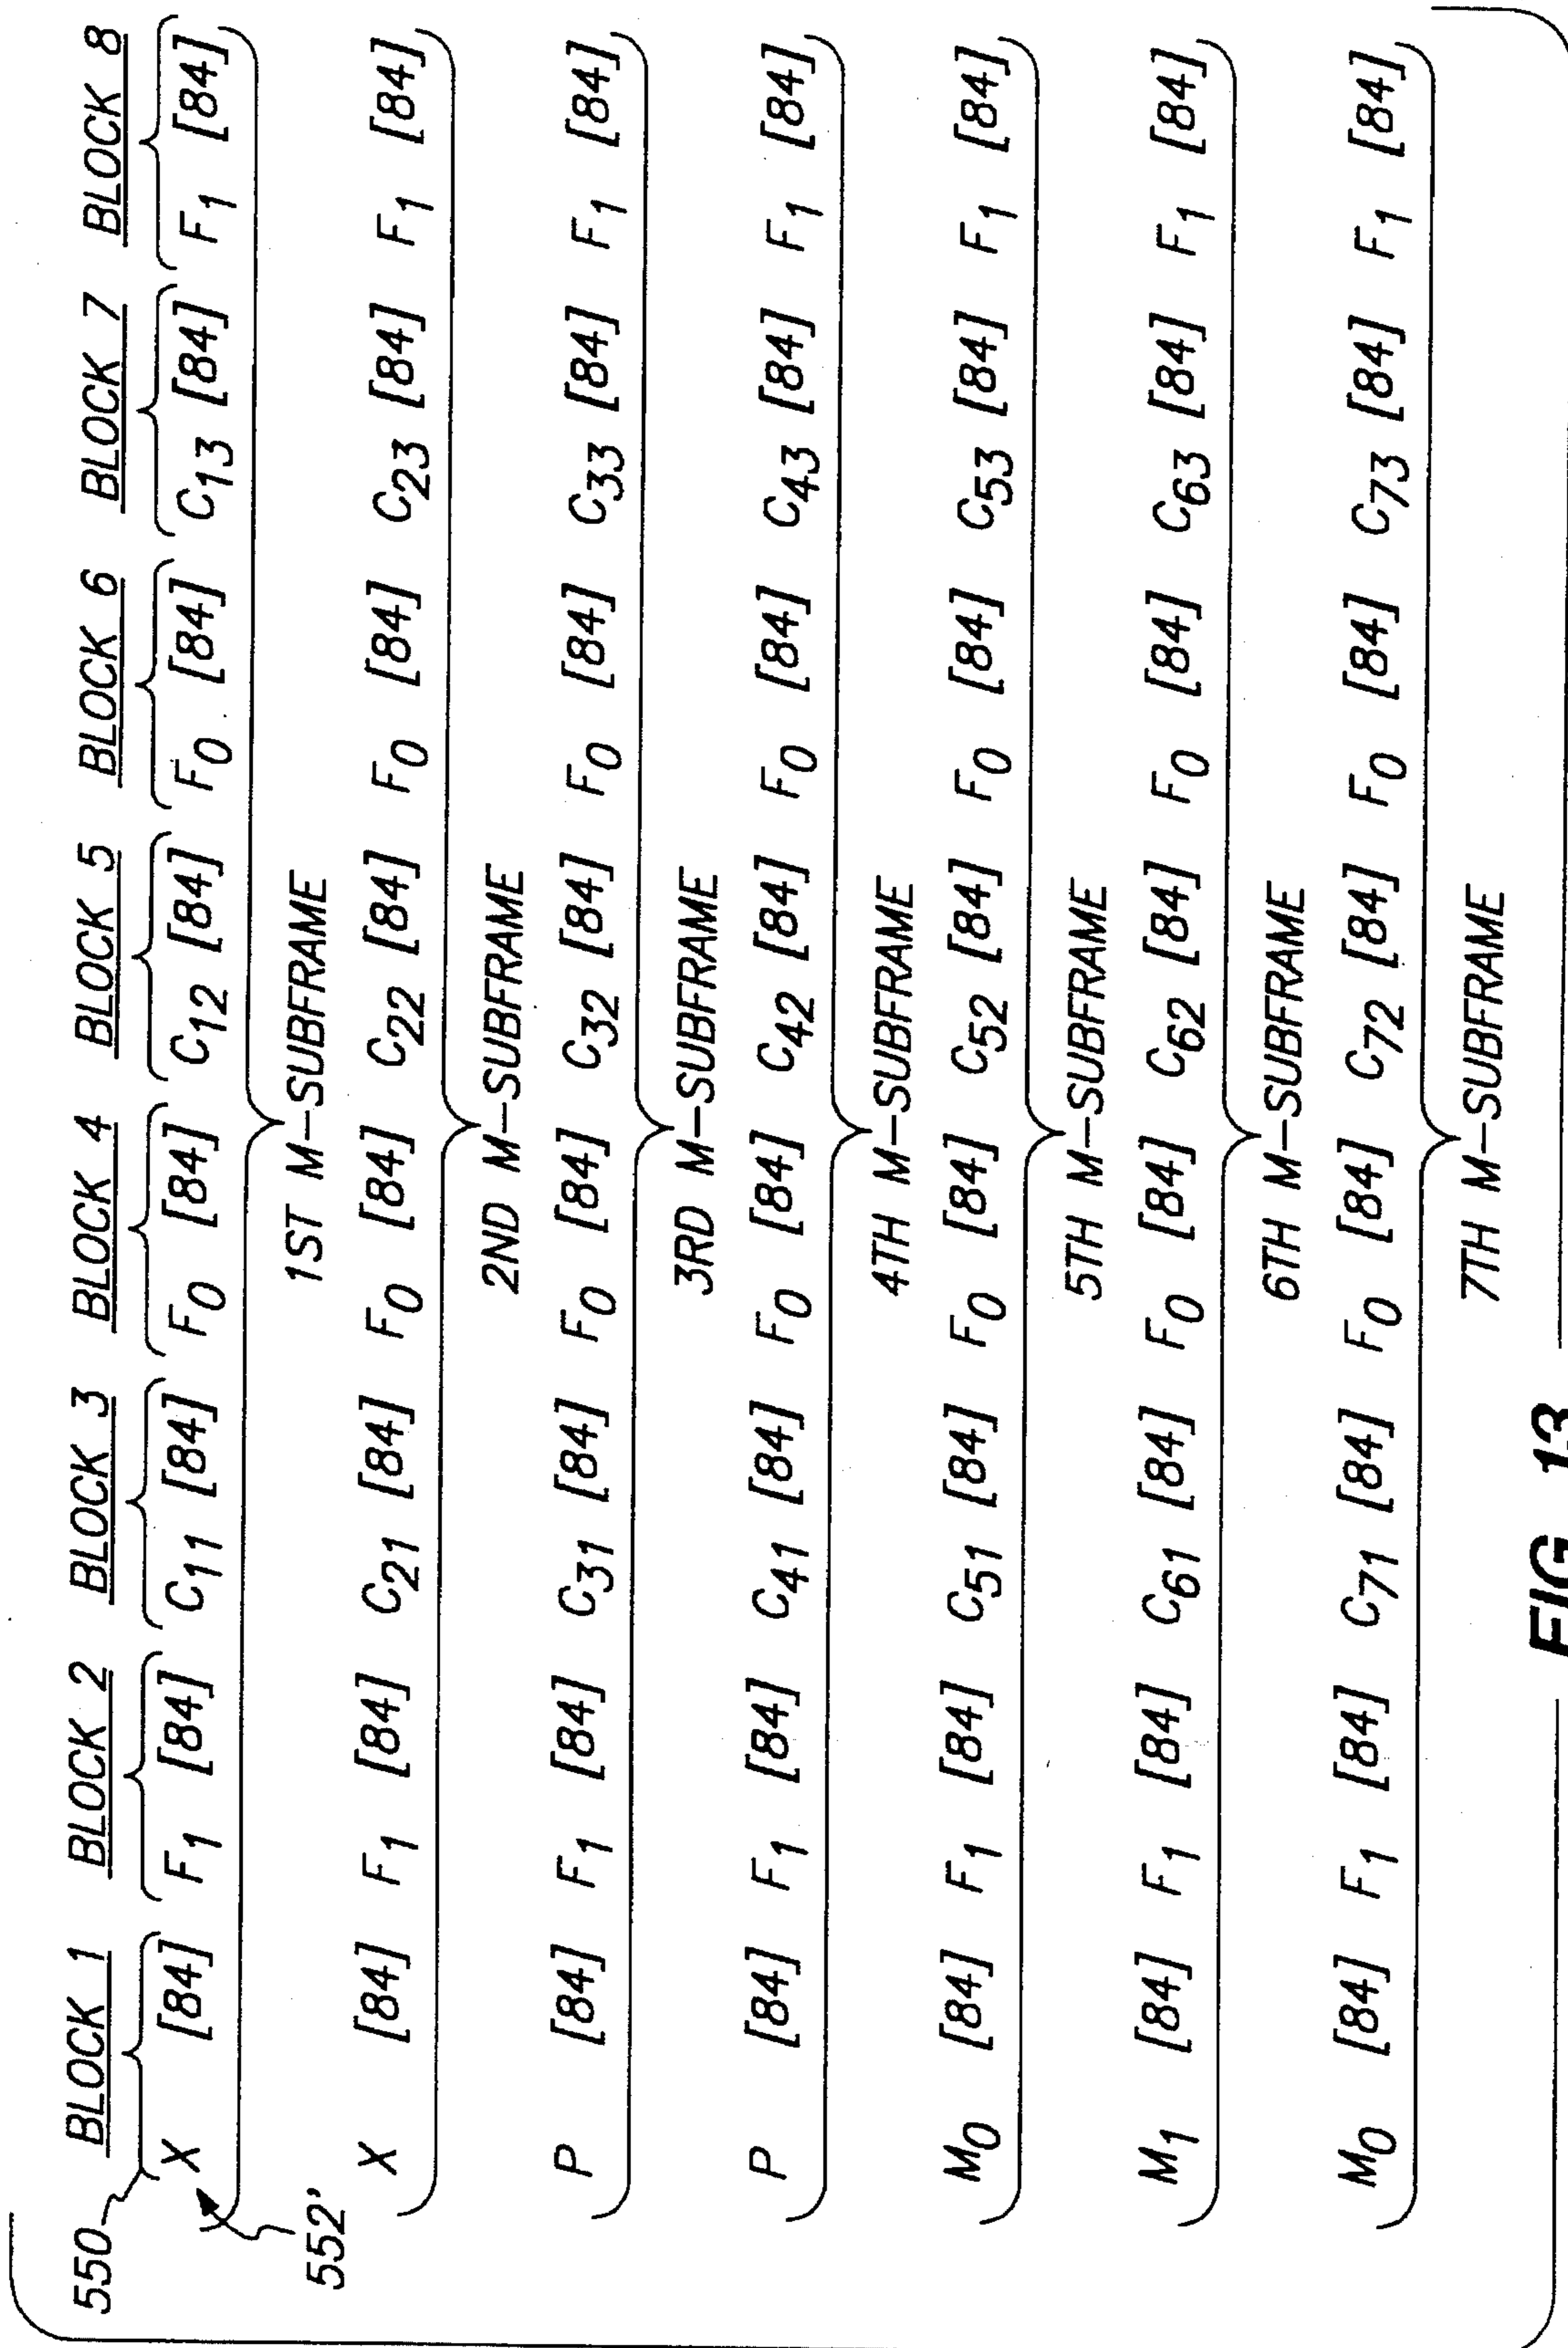 BLOCK 1 BLOCK 2 BLOCK 3 BLOCK 4 BLOCK 5 BLOCK 6 BLOCK 7 BLOCK 8
550
X [84] F1 [84] C11 [84] F0 [84] C12 [84] F0 [84] C13 [84] F1 [84]
552'
1ST M-SUBFRAME
X [84] F1 [84] C21 [84] F0 [84] C22 [84] F0 [84] C23 [84] F1 [84]
2ND M-SUBFRAME
P [84] F1 [84] C31 [84] F0 [84] C32 [84] F0 [84] C33 [84] F1 [84]
3RD M-SUBFRAME
P [84] F1 [84] C41 [84] F0 [84] C42 [84] F0 [84] C43 [84] F1 [84]
4TH M-SUBFRAME
M0 [84] F1 [84] C51 [84] F0 [84] C52 [84] F0 [84] C53 [84] F1 [84]
5TH M-SUBFRAME
M1 [84] F1 [84] C61 [84] F0 [84] C62 [84] F0 [84] C63 [84] F1 [84]
6TH M-SUBFRAME
M0 [84] F1 [84] C71 [84] F0 [84] C72 [84] F0 [84] C73 [84] F1 [84]
7TH M-SUBFRAME
FIG. 13